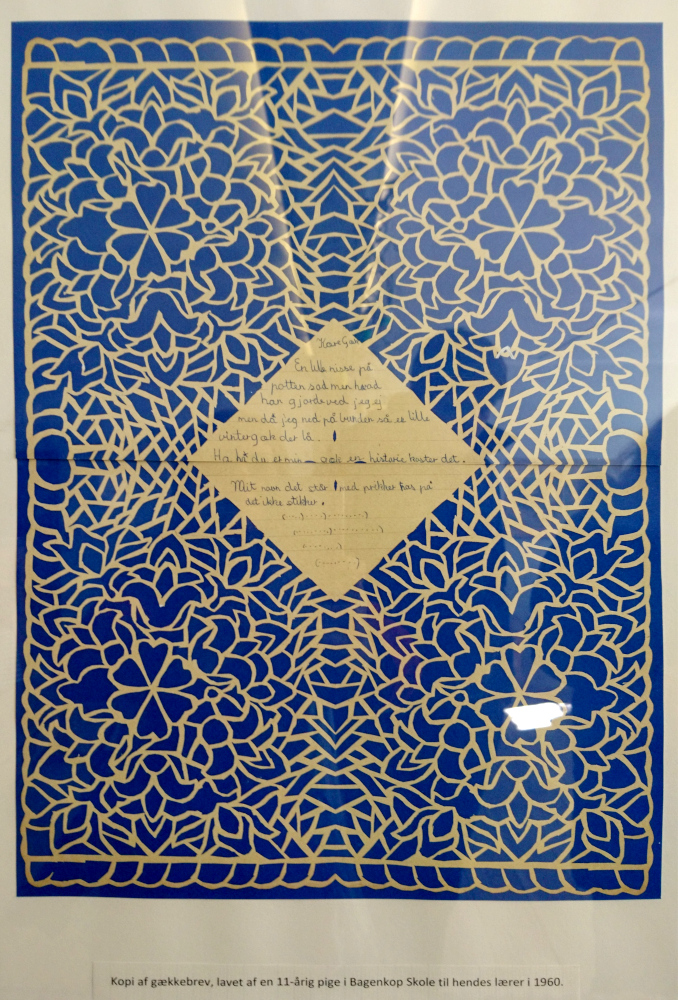 Kære
En lille nisse på
potten sad men hvad
han gjorde ved jeg ej
men då jeg ned på bunden så en lille
vintergæk der lå..
Ha hi du er min gæk en historie koster det.
Mit navn det står med prikker pas på
det ikke stikker.
(...)
(...)
(...)
(...)
Kopi af gækkebrev, lavet af en 11-årig pige i Bagenkop Skole til hendes lærer i 1960.